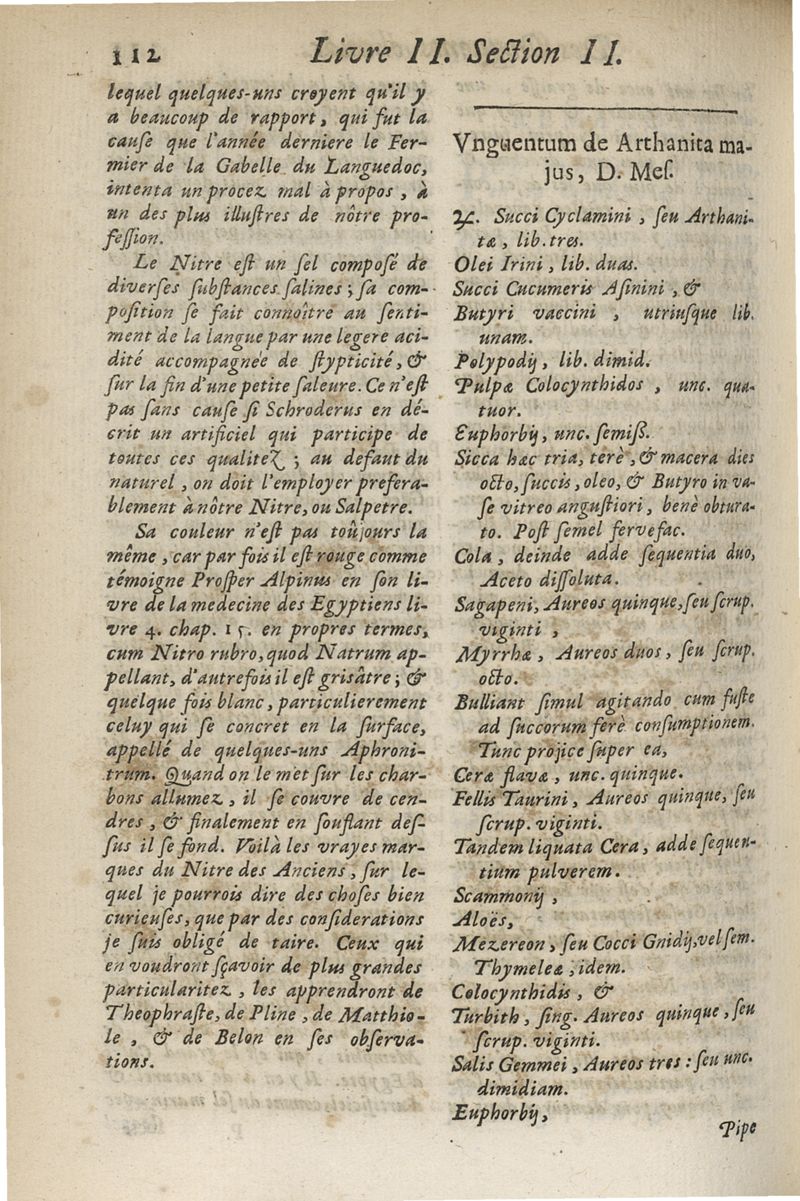 112 Livre II. Section II.
lequel quelques-uns croyent qu'il y
a beaucoup de rapport, qui fut la
cauſe que l'année derniere le Fer-
mier de la Gabelle du Languedoc,
intenta un procez mal à propos, à
un des plus illuſtres de nôtre pro-
feſſion.
Le Nitre eſt un ſel compoſé de
diverſes ſubſtances ſalines; ſa com-
poſition ſe fait connoître au ſenti-
ment de la langue par une legere aci-
dité accompagnée de ſtypticité, &
ſur la fin d'une petite ſaleure. Ce n'eſt
pas ſans cauſe ſi Schroderus en dé-
crit un artificiel qui participe de
toutes ces qualitez; au defaut du
naturel, on doit l'employer prefera-
blement à nôtre Nitre, ou Salpetre.
Sa couleur n'eſt pas toûjours la
même, car par fois il eſt rouge comme
témoigne Proſper Alpinus en ſon li-
vre de la medecine des Egyptiens li-
vre 4. chap. 15. en propres termes,
cum Nitro rubro, quod Natrum ap-
pellant, d'autrefois il eſt griſâtre; &
quelque fois blanc, particulierement
celuy qui ſe concret en la ſurface,
appellé de quelques-uns Aphroni-
trum. Quand on le met ſur les char-
bons allumez, il ſe couvre de cen-
dres, & finalement en ſouflant deſ-
ſus il ſe fond. Voilà les vrayes mar-
ques du Nitre des Anciens, ſur le-
quel je pourrois dire des choſes bien
curieuſes, que par des conſiderations
je ſuis obligé de taire. Ceux qui
en voudront ſçavoir de plus grandes
particularitez, les apprendront de
Theophraſte, de Pline, de Matthio-
le, & de Belon en ſes obſerva-
tions.
Vnguentum de Arthanita ma-
jus, D. Meſ.
℞. Succi Cyclamini, ſeu Arthani-
tæ, lib. tres.
Olei Irini, lib. duas.
Succi Cucumeris Aſinini, &
Butyri vaccini, utriuſque lib.
unam.
Polypodij, lib. dimid.
Pulpæ Colocynthidos, unc. qua-
tuor.
Euphorbij, unc. ſemiß.
Sicca hæc tria, terè, & macera dies
octo, ſuccis, oleo, & Butyro in va-
ſe vitreo anguſtiori, benè obtura-
to. Poſt ſemel fervefac.
Cola, deinde adde ſequentia duo,
Aceto diſſoluta.
Sagapeni, Aureos quinque, ſeu ſcrup.
viginti,
Myrrhæ, Aureos duos, ſeu ſcrup.
octo.
Bulliant ſimul agitando cum fuſte
ad ſuccorum ferè conſumptionem.
Tunc projice ſuper ea,
Ceræ flavæ, unc. quinque.
Fellis Taurini, Aureos quinque, ſeu
ſcrup. viginti.
Tandem liquata Cera, adde ſequen-
tium pulverem.
Scammonij,
Aloës,
Mezereon, ſeu Cocci Gnidij, vel ſem.
Thymeleæ, idem.
Colocynthidis, &
Turbith, ſing. Aureos quinque, ſeu
ſcrup. viginti.
Salis Gemmei, Aureos tres: ſeu unc.
dimidiam.
Euphorbij,
Pipe